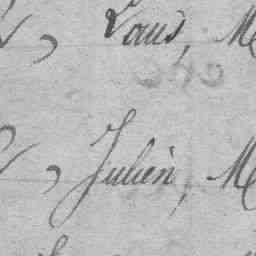 Louis, M
Julien, M